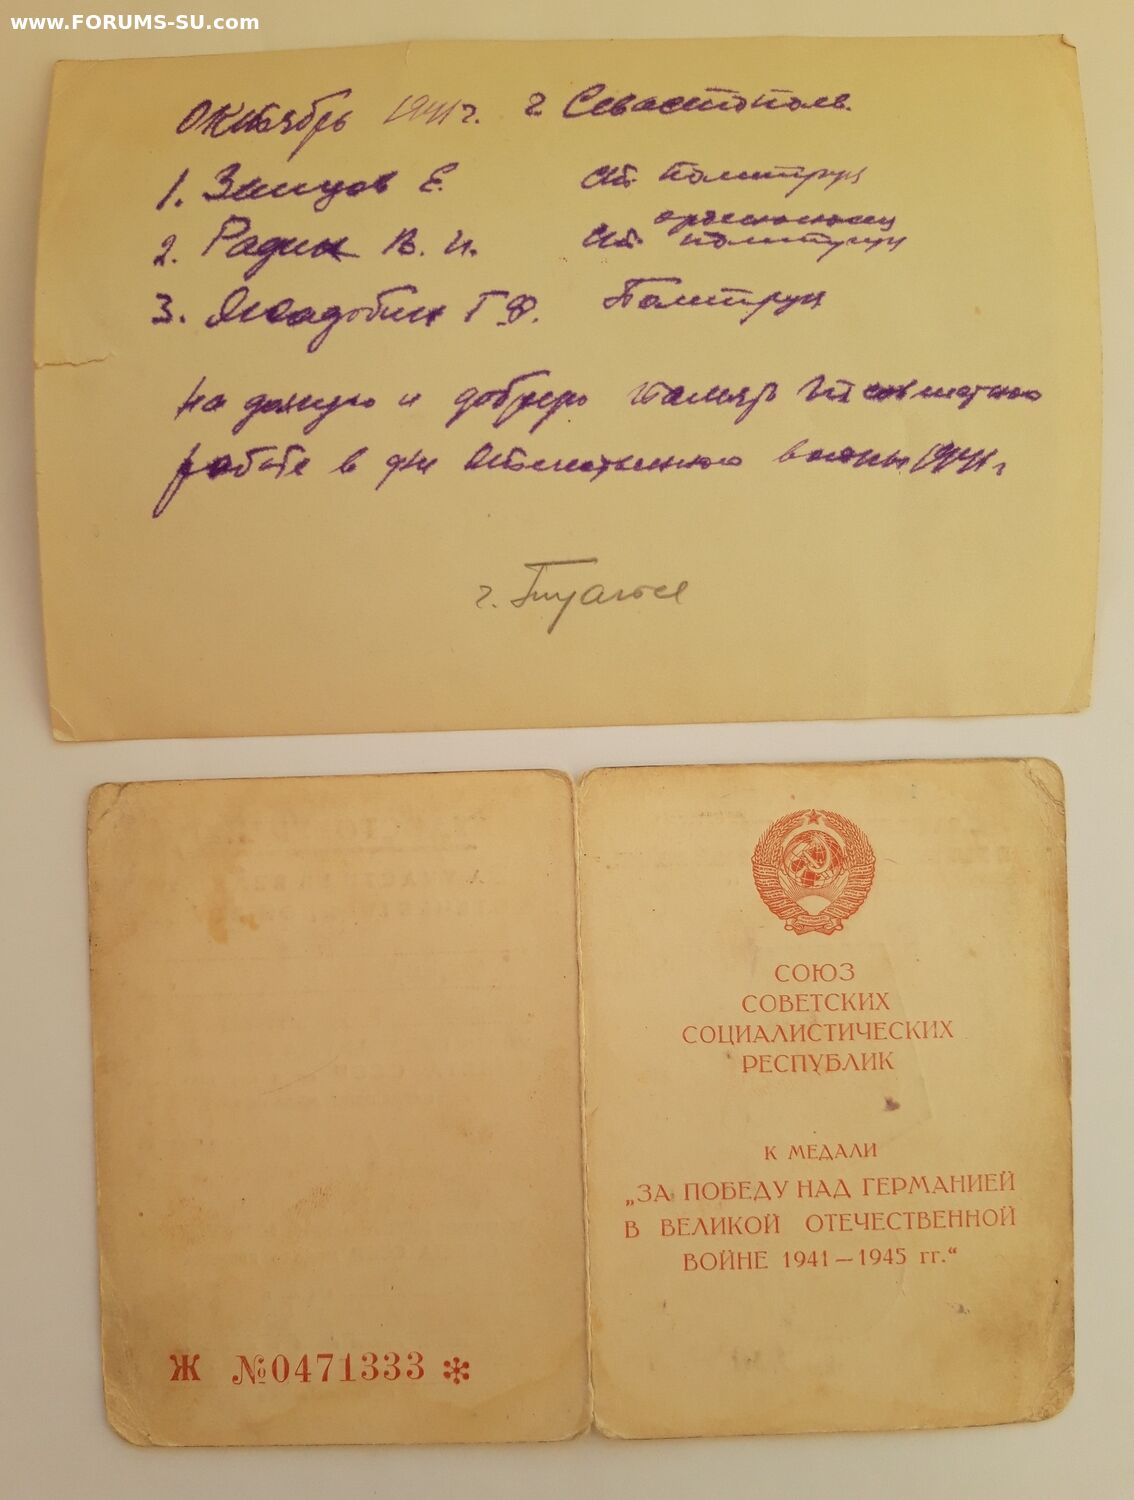 www.FORUMS-SU.com
Октябрь 1941 г. г. Севастополь.
1. Зайцов Е. Ст. Политрук
орденоносец
2. Радин В. И. Ст. политрук
3. Г. Ф. Политрук
На долгую и добрую память по совместной
работе в дни Отечественной войны 1941 г
г. Туапсе
СОЮЗ
СОВЕТСКИХ
СОЦИАЛИСТИЧЕСКИХ
РЕСПУБЛИК
К МЕДАЛИ
„ЗА ПОБЕДУ НАД ГЕРМАНИЕЙ
В ВЕЛИКОЙ ОТЕЧЕСТВЕННОЙ
ВОЙНЕ 1941—1945 гг.“
Ж №0471333 *